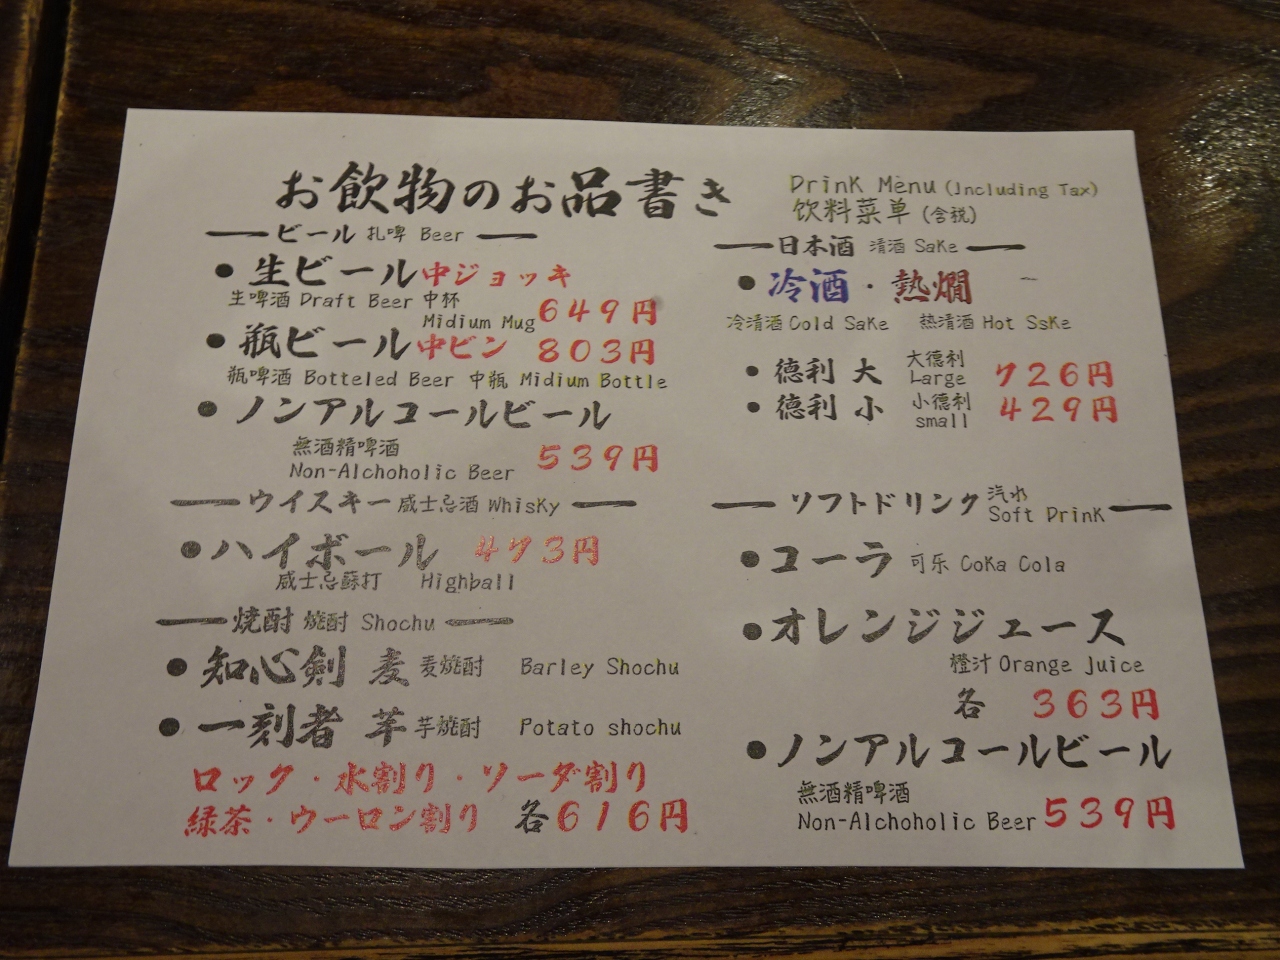 お飲物のお品書き
Drink Menu (Including Tax)
饮料菜单 (含税)
ビール 扎啤 Beer
● 生ビール中ジョッキ
生啤酒 Draft Beer 中杯
Midium Mug 649円
● 瓶ビール中ビン 803円
瓶啤酒 Botteled Beer 中瓶 Midium Bottle
● ノンアルコールビール
無酒精啤酒
Non-Alchoholic Beer 539円
ウイスキー 威士忌酒 Whisky
● ハイボール 473円
威士忌蘇打 Highball
焼酎 焼酎 Shochu
● 知心剣 麦 麦焼酎 Barley Shochu
● 一刻者 芋 芋焼酎 Potato shochu
ロック・水割り・ソーダ割り
緑茶・ウーロン割り 各616円
日本酒 清酒 Sake
● 冷酒・熱燗
冷清酒 Cold Sake 热清酒 Hot Sske
● 徳利 大 大德利 Large 726円
● 徳利 小 小德利 small 429円
ソフトドリンク 汽水 Soft Drink
● コーラ 可乐 Coka Cola
● オレンジジュース
橙汁 Orange Juice
各 363円
● ノンアルコールビール
無酒精啤酒
Non-Alchoholic Beer 539円